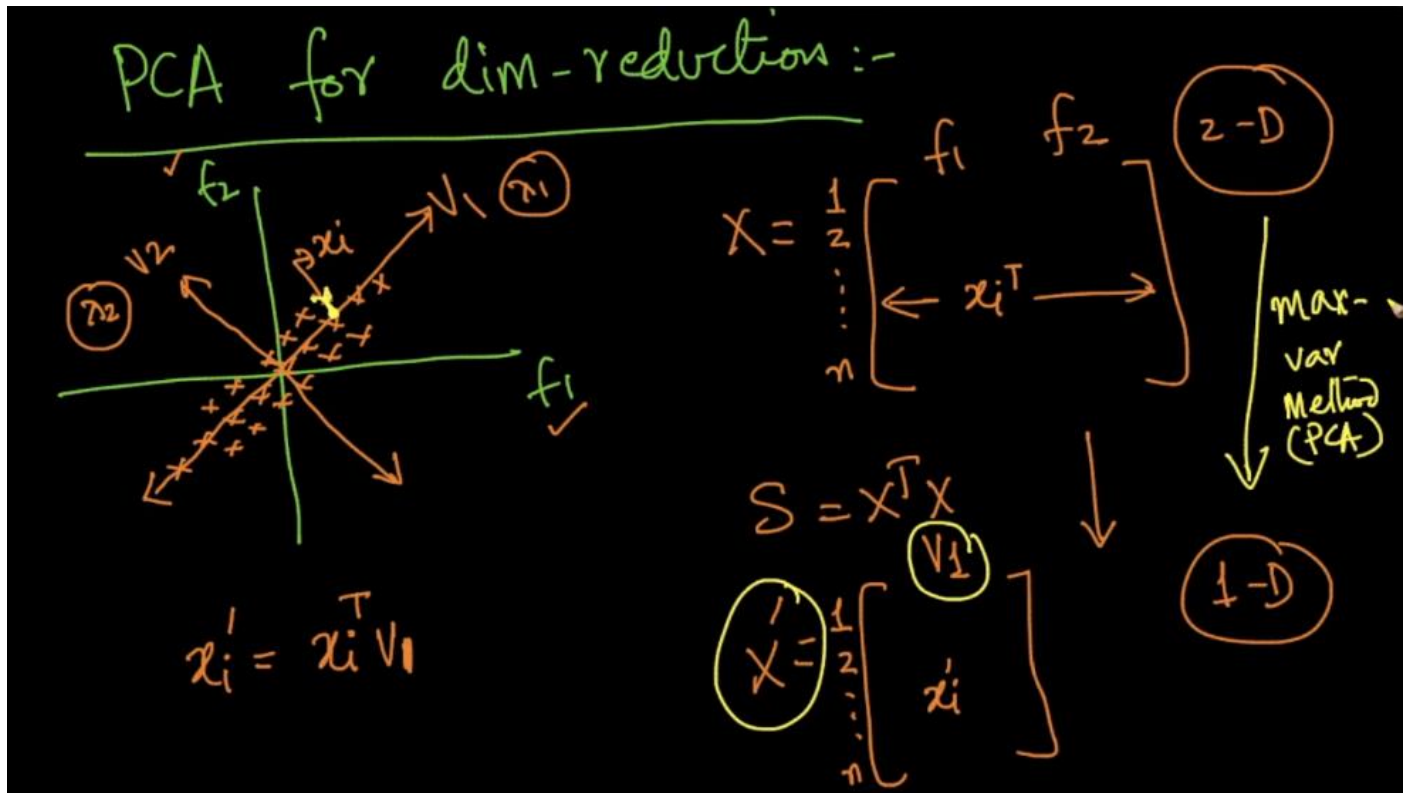 PCA for dim-reduction:-
f2
V1 λ1
xi
V2
λ2
f1
xi' = xiᵀ V1
f1 f2
2-D
X = 1
2
n
xiᵀ
max-
var
Method
(PCA)
S = XᵀX
V1
1-D
X' = 1
2
n
xi'